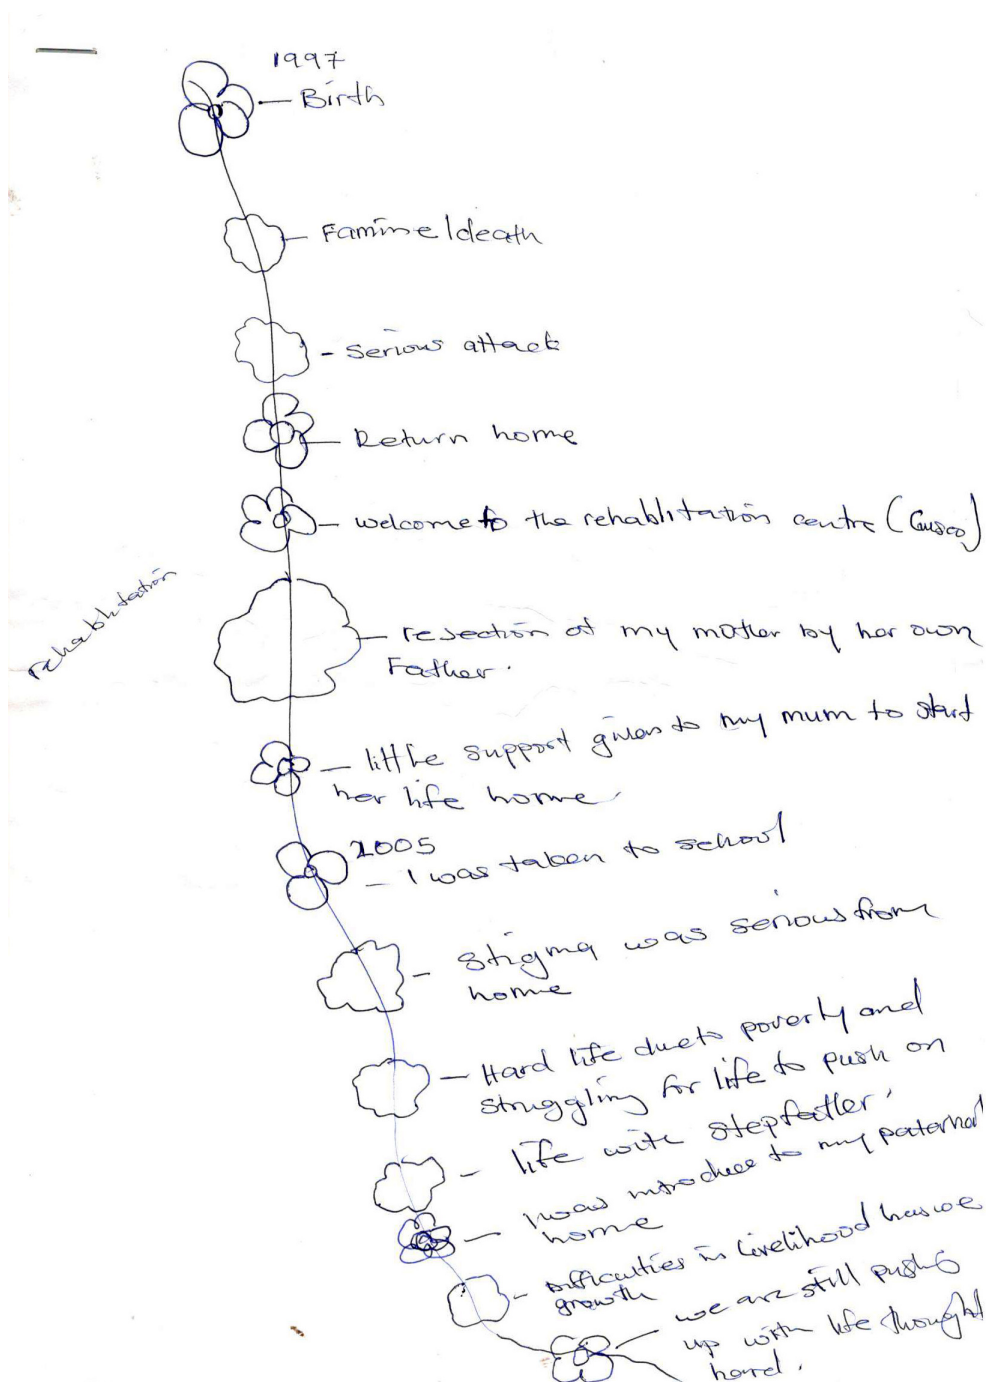 1997
Birth
Famine/death
- serious attack
Return home
welcome to the rehablitation centre (Gusco)
rehablitation
resection of my mother by her own
Father.
little support given to my mum to start
her life home
2005
- I was taken to school
- Stigma was serious from
home
- Hard life due to poverty and
struggling for life to push on
- life with stepfather.
- I was introduce to my paternal
home
- Difficulties in livelihood
growth
we are still pushing
up with life thought
hard.